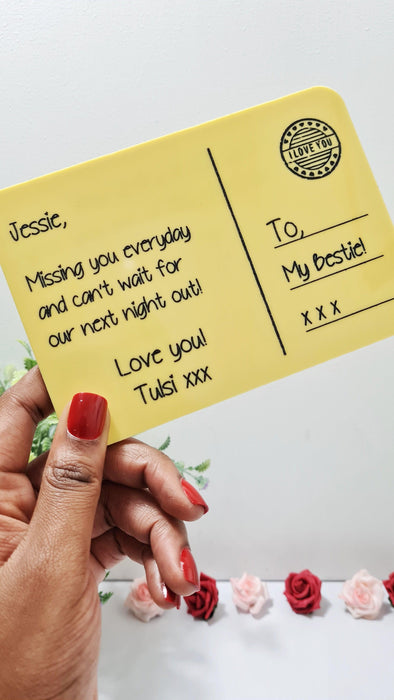 Jessie,
Missing you everyday
and can't wait for
our next night out!
Love you!
Tulsi xxx
I LOVE YOU
To,
My Bestie!
x x x